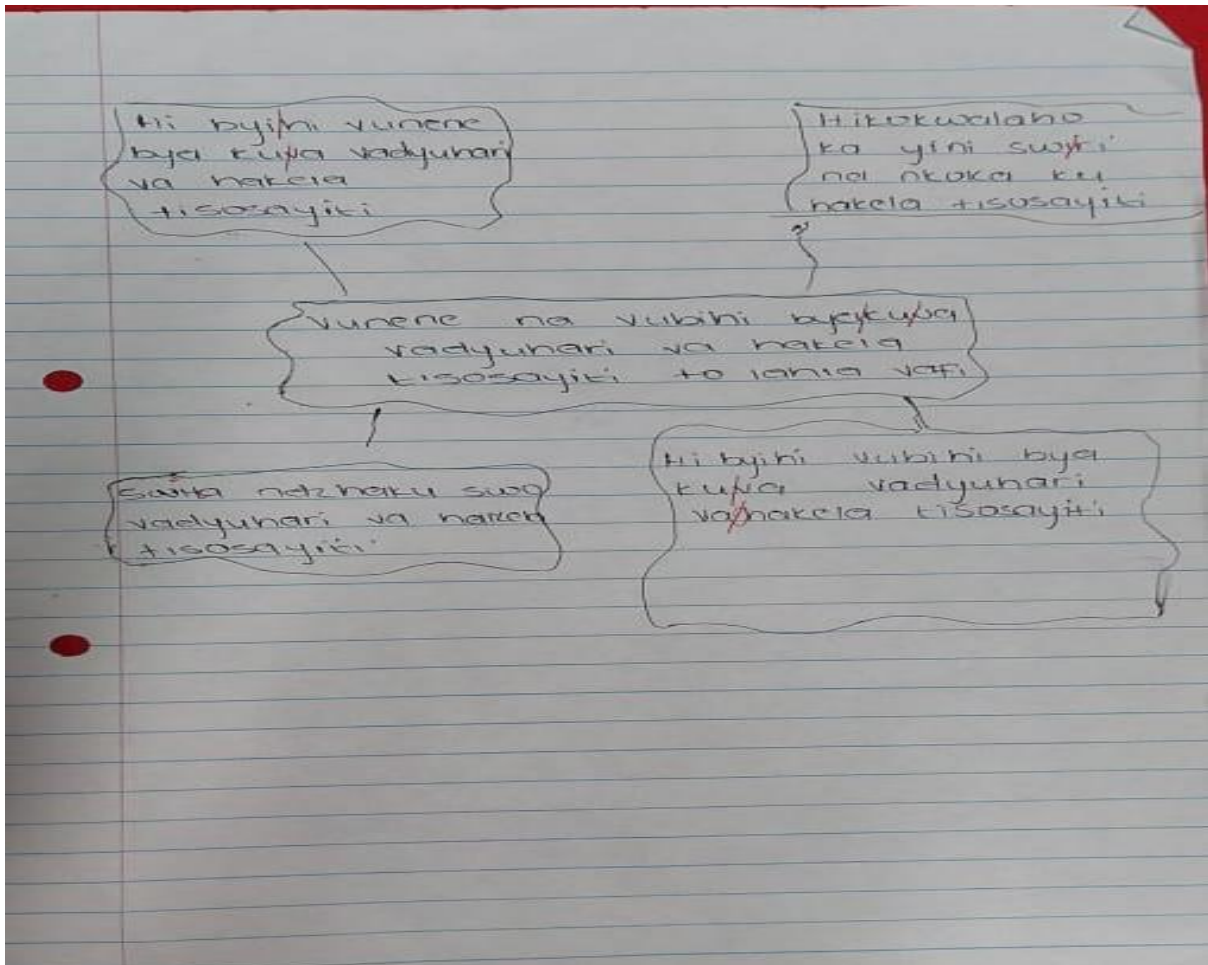 Hi byihi vunene
bya kuva vadyuhari
va hakela
tisosayiti
Hikokwalaho
ka yini swiri
na nkoka ku
hakela tisosayiti
Vunene na vubihi bya kuva
vadyuhari va hakela
tisosayiti to lahla vafi
ndzhaku swa
vadyuhari va
tisosayiti
Hi byihi vubihi bya
kuva vadyuhari
va hakela tisosayiti